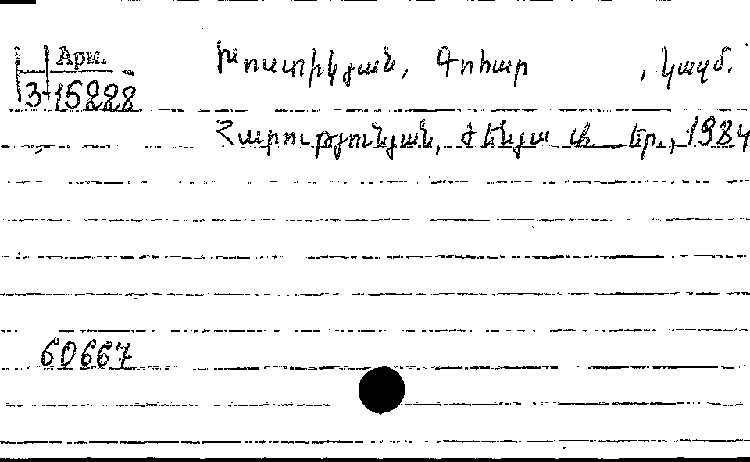 Арм.
3-15228
Խոստիկյան, Գոհար , կազմ.
Հարությունյան, Ժենյա Ա. Եր., 1984
60667